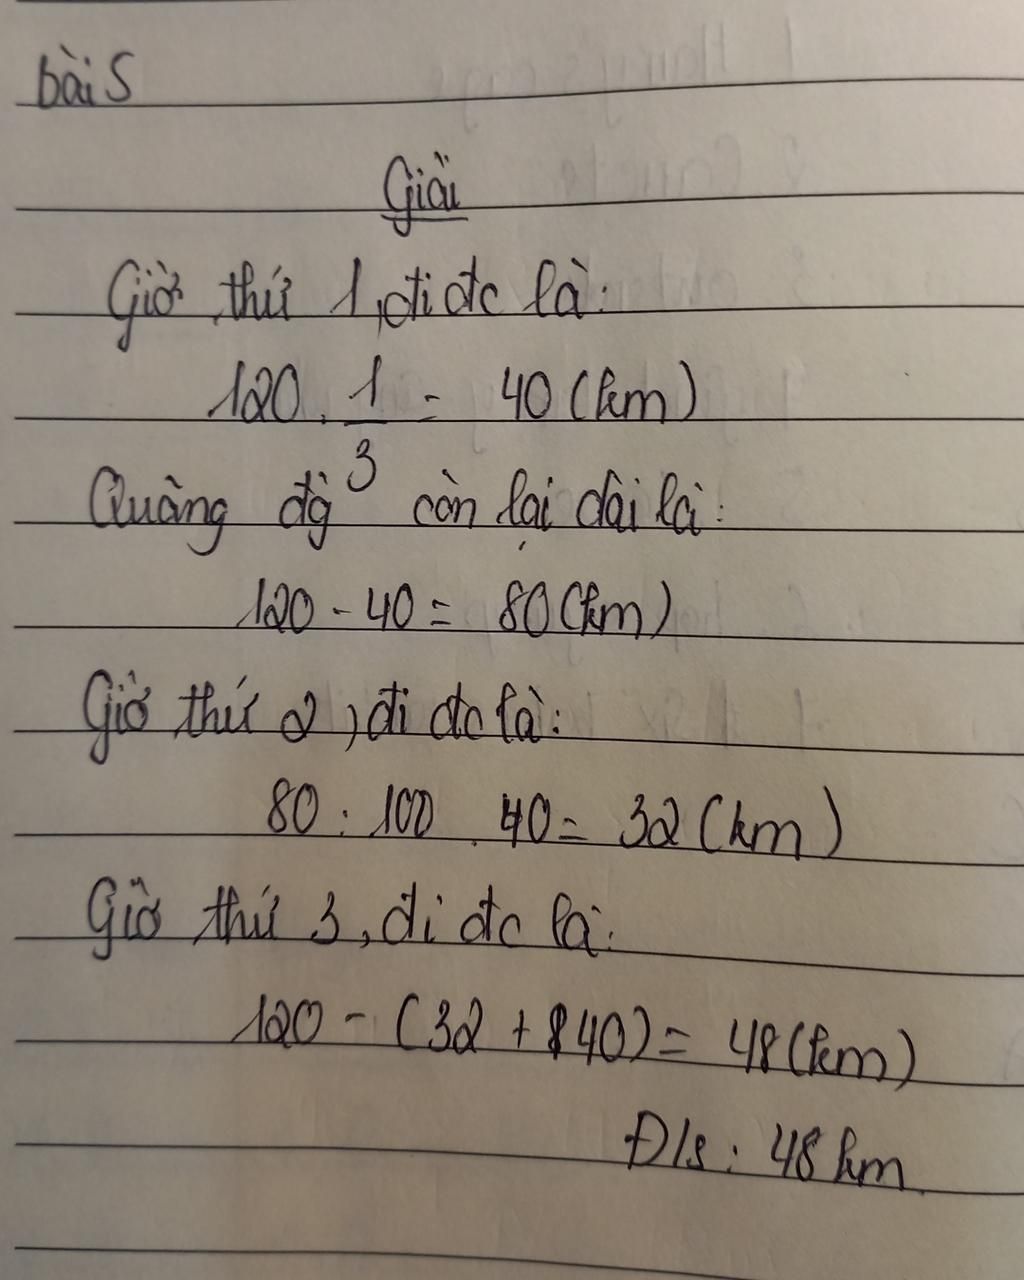 bài 5
Giải
Giờ thứ 1, đi đc là:
120 . 1/3 = 40 (km)
Quãng đg còn lại dài là:
120 - 40 = 80 (km)
Giờ thứ 2, đi đc là:
80 : 100 . 40 = 32 (km)
Giờ thứ 3, đi đc là:
120 - (32 + 40) = 48 (km)
Đ/s : 48 km